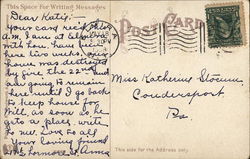 This Space for Writing Messages
POST CARD
Dear Katie,
Your card rec'd
A.M. I am at
with you. have been
here two weeks, our
house was destroyed
by fire the 22nd and
are going to remain
here until I go back
to keep house for
Will, as soon as he
gets a place. write
to me. Love to all
Your loving friend
Anna
Miss Katherine
Coudersport
Pa.
This side for the Address only.